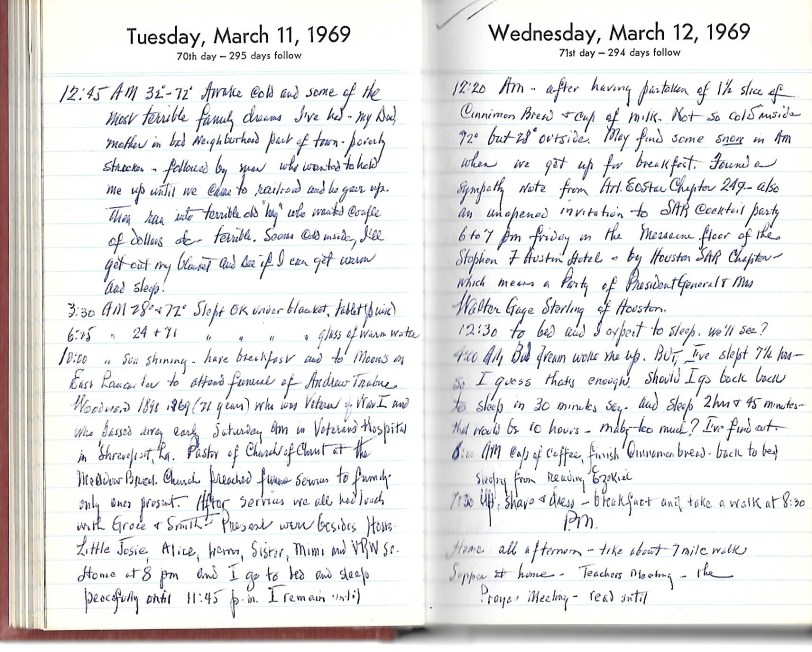 Tuesday, March 11, 1969
70th day – 295 days follow
12:45 AM 32°-72° Awake cold and some of the
most terrible family dreams I've had - my Dad,
mother in bad neighborhood part of town - poverty
stracken - followed by men who wanted to hold
me up until we came to railroad and he gave up.
Then ran into terrible old "hag" who wanted couple
of dollars etc terrible. Seems cold inside, I'll
get out my blanket and see if I can get warm
and sleep.
3:30 AM 28° + 72° Slept OK under blanket, tablet
6:45 " 24 + 71 " " " " glass of warm water
10:00 " sun shining - have breakfast and to Moons on
East Lancaster to attend funeral of Andrew
Woodward 1898-1969 (71 years) who was Veteran of War I and
who passed away early Saturday Am in Veterans Hospital
in Shreveport, La. Pastor of Church of Christ at the
Church preached services to family
only ones present. After services we all had lunch
with Grace & Smith - Present were besides Hosts
Little Josie, Alice, Sister, Mimi and VRW Sr.
Home at 8 pm and I go to bed and sleep
peacefully until 11:45 p.m. I remain until
Wednesday, March 12, 1969
71st day – 294 days follow
12:20 Am - after having partaken of 1½ slice of
Cinnimon Bread & cup of milk. Not so cold inside
72° but 28° outside. May find some snow in Am
when we get up for breakfast. Found a
sympathy note from Chapter 247 - also
an unopened invitation to SAR Cocktail party
6 to 7 pm Friday in the Mezzanine floor of the
Stephen F Austin Hotel - by Houston SAR Chapter -
which means a Party of President General & Mrs
Walter Gage Sterling of Houston.
12:30 to bed and I expect to sleep. we'll see?
4:00 AM Bad dream woke me up. BUT, I've slept 7¼ hrs -
so I guess thats enough, should I go back back
to sleep in 30 minutes say - and sleep 2 hrs & 45 minutes -
that would be 10 hours - maby too much? I'll find out -
AM Cup of coffee, finish Cinnamon bread - back to bed
sleepy from reading Ezekiel
7:30 up, shave & dress - breakfast and take a walk at 8:30
P.M.
Home all afternoon - take about 7 mile walk
Supper at home - Teachers Meeting - the
Prayer Meeting - read until